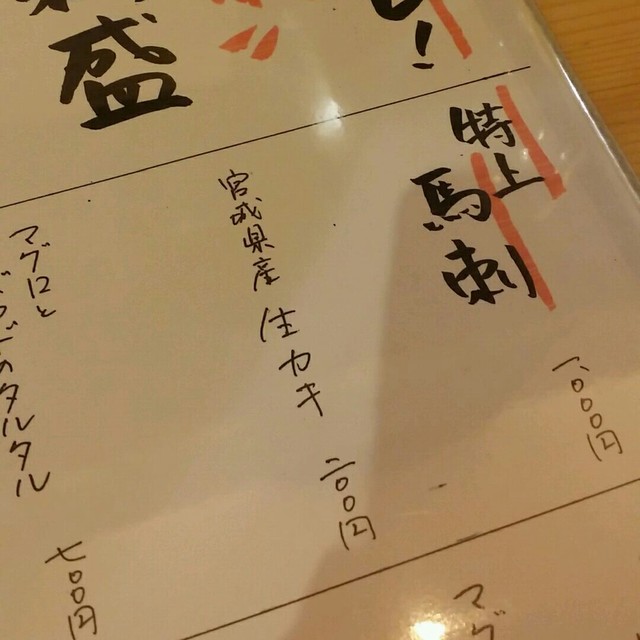 ！
盛
特上
馬刺
一、〇〇〇円
宮城県産 生カキ
二〇〇円
マグロと
のタルタル
七〇〇円
マグ